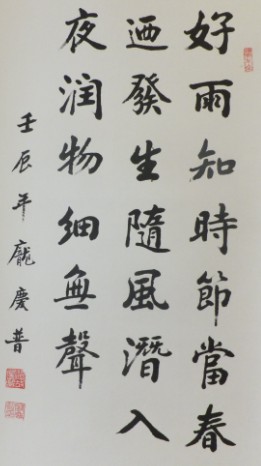 好雨知時節當春
迺發生隨風潛入
夜润物细無聲
壬辰年龐慶普